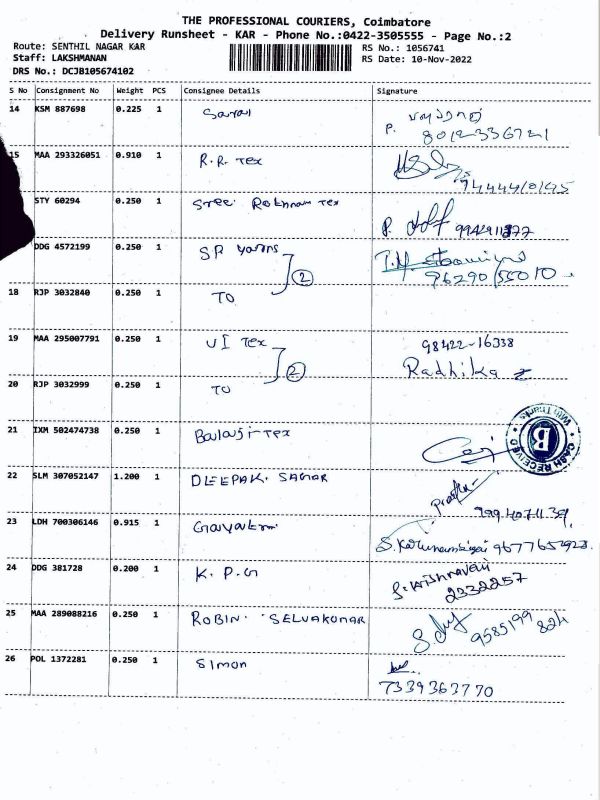 THE PROFESSIONAL COURIERS, Coimbatore
Delivery Runsheet - KAR - Phone No.:0422-3505555 - Page No.:2
Route: SENTHIL NAGAR KAR RS No.: 1056741
Staff: LAKSHMANAN RS Date: 10-Nov-2022
DRS No.: DCJB105674102
S No Consignment No Weight PCS Consignee Details Signature
14 KSM 887698 0.225 1
P. 8012336721
15 MAA 293326051 0.910 1 R.R. Tex
STY 60294 0.250 1 Sree Rethnam Tex
P.
DDG 4572199 0.250 1 SP yarns
2
18 RJP 3032840 0.250 1 TO
19 MAA 295007791 0.250 1 UI Tex 98422-16338
2 Radhika
20 RJP 3032999 0.250 1 TO
21 IXM 502474738 0.250 1 Balaji Tex
CASH RECEIVED
With Thanks
B
22 SLM 307052147 1.200 1 DLEEPAK. SAGAR
23 LDH 700306146 0.915 1 Gayatri
24 DDG 381728 0.200 1 K. P. G
2332257
25 MAA 289088216 0.250 1 ROBIN. SELVAKUMAR
9585199
824
26 POL 1372281 0.250 1 Simon
7339363770